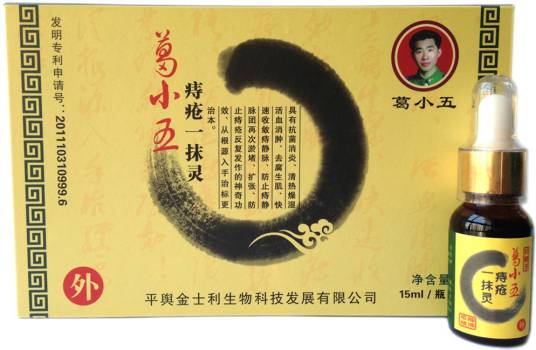 发明专利申请号：201110310999.6
葛小五
痔疮一抹灵
具有抗菌消炎、清热燥湿
活血消肿、去腐生肌、快
速收敛痔静脉、防止痔静
脉团再次淤堵、扩张、防
止痔疮反复发作的神奇功
效、从根源入手治标更
治本。
葛小五
外
净含量
15ml/瓶
平舆金士利生物科技发展有限公司
葛小五
痔疮
一抹灵
外